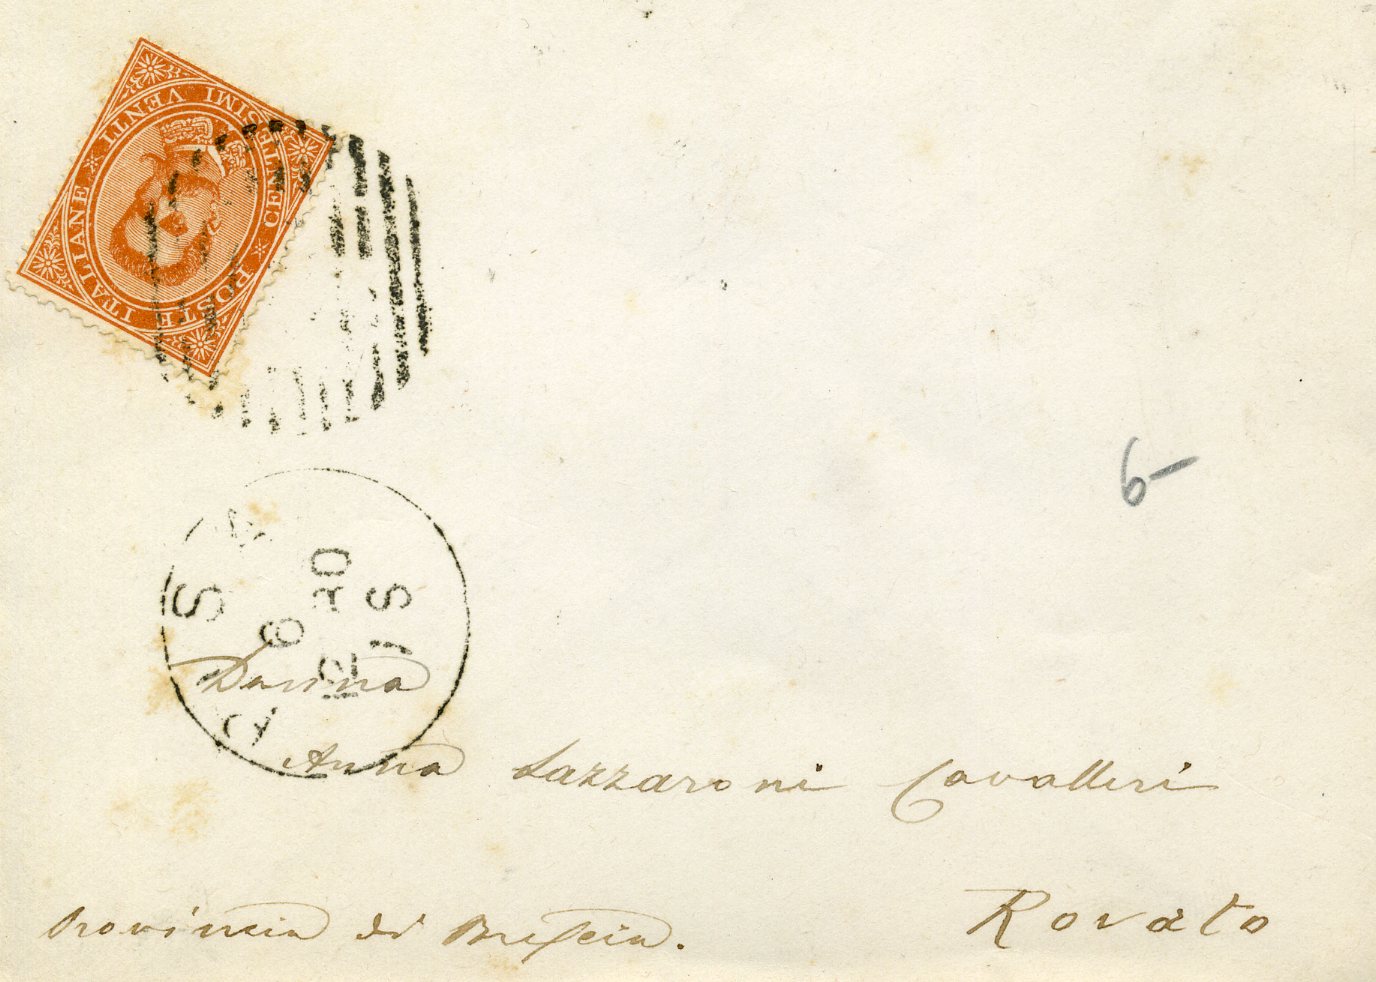 POSTE ITALIANE * CENTESIMI VENTI *
6-
12 S
Donna
Anna Lazzaroni Cavalleri
Rovato
Provincia di Brescia.